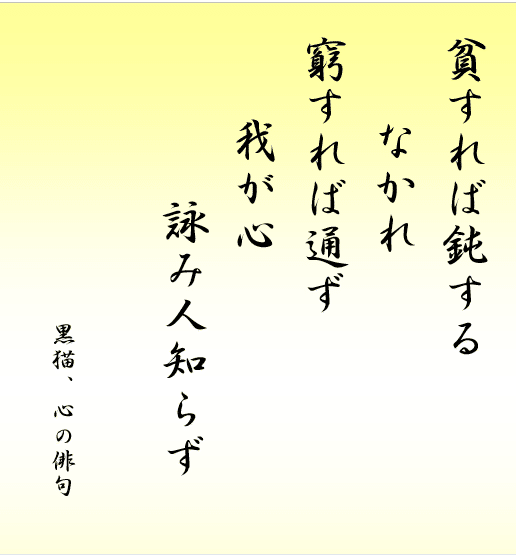 貧すれば鈍する
なかれ
窮すれば通ず
我が心
詠み人知らず
黒猫、心の俳句